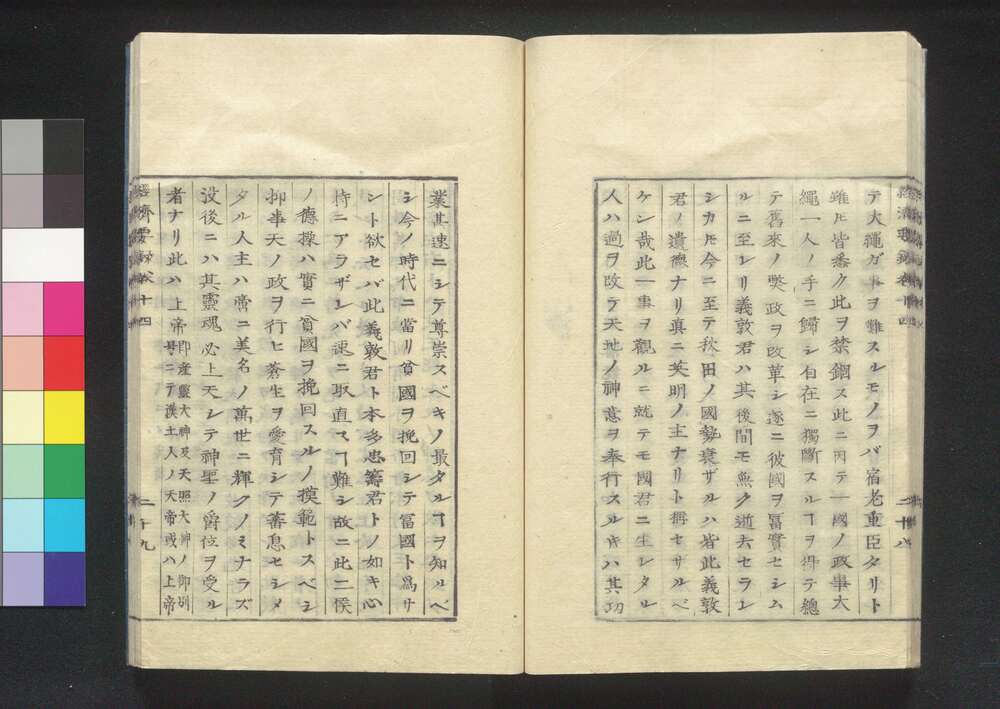 經濟要錄卷十四
二十八
テ大繩ガ事ヲ難スルモノヲバ宿老重臣タリト
雖𪜈皆悉ク此ヲ禁錮ス此ニ因テ一國ノ政事大
繩一人ノ手ニ歸シ自在ニ獨斷スルヿヲ得テ總
テ舊來ノ獘政ヲ改革シ遂ニ彼國ヲ冨實セシム
ルニ至レリ義敦君ハ其後間モ無ク逝去セラレ
シカ𪜈今ニ至テ秋田ノ國勢衰ザルハ皆此義敦
君ノ遺德ナリ真ニ英明ノ主ナリト稱セサルベ
ケン哉此一事ヲ觀ルニ就テモ國君ニ生レタル
人ハ過ヲ改テ天地ノ神意ヲ奉行スル𪜈ハ其功
業其速ニシテ尊崇スベキノ最タルヿヲ知ルベ
シ今ノ時代ニ當リ貧國ヲ挽回シテ冨國ト爲サ
ント欲セバ此義敦君ト本多忠籌君トノ如キ心
持ニアラザレバ速ニ取直スヿ難シ故ニ此二侯
ノ德操ハ實ニ貧國ヲ挽回スルノ摸範トスベシ
抑事天ノ政ヲ行ヒ蒼生ヲ愛育シテ蕃息セシメ
タル人主ハ啻ニ美名ノ萬世ニ輝クノミナラズ
没後ニハ其靈魂必上天シテ神聖ノ爵位ヲ受ル
者ナリ此ハ上帝即産靈大神及天照大神ノ御別
號ニテ漢土人ノ天帝或ハ上帝
經濟要錄卷十四
二十九